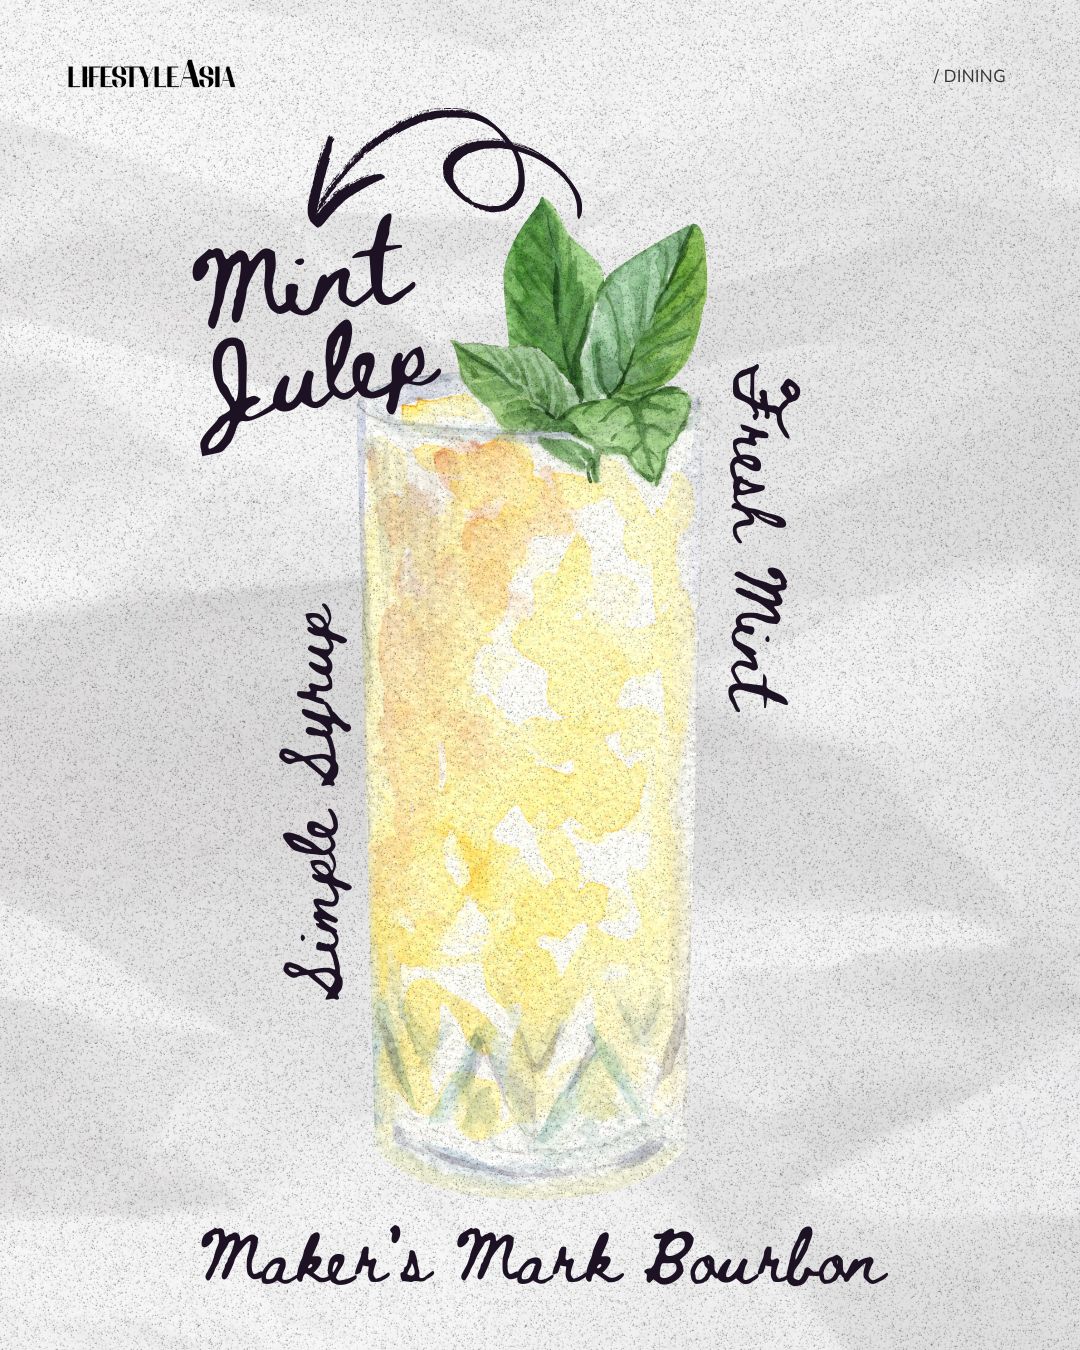 LIFESTYLEASIA
/ DINING
Mint
Julep
Fresh Mint
Simple Syrup
Maker's Mark Bourbon